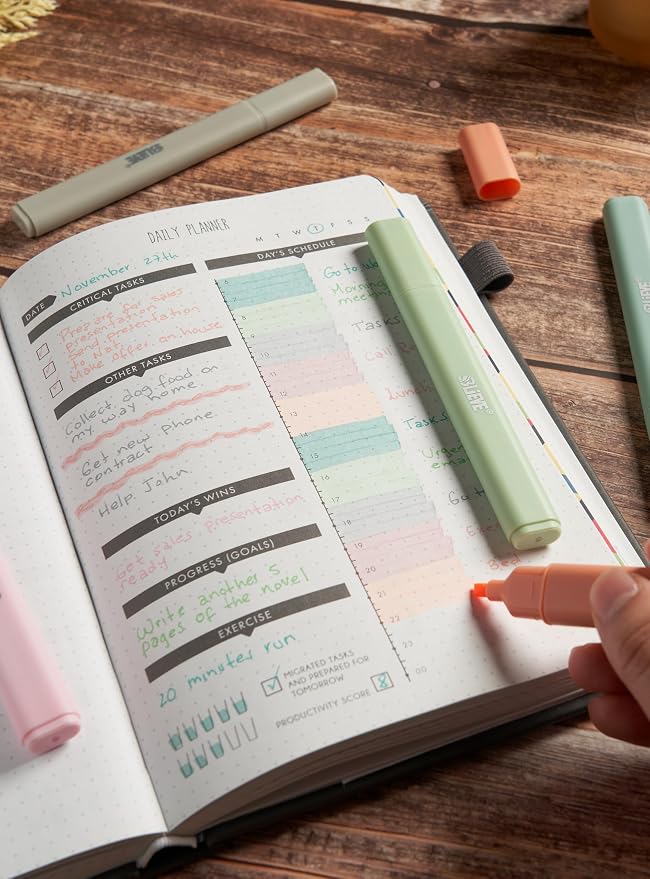 LIEVE
DAILY PLANNER
M T W T F S S
DATE November, 27th
CRITICAL TASKS
Prepare for sales
presentation
Send presentation
to Nat
Make offer on house
OTHER TASKS
Collect dog food on
my way home
Get new phone
contract
Help John
TODAY'S WINS
Get sales presentation
ready
PROGRESS (GOALS)
Write another 5
pages of the novel
EXERCISE
20 minutes run
MIGRATED TASKS
AND PREPARED FOR
TOMORROW
PRODUCTIVITY SCORE 8
DAY'S SCHEDULE
6
7
8
9
10
11
12
13
14
15
16
17
18
19
20
21
22
23
00
Go to
Morning
meeting
Tasks
Call
Lunch
Tasks
Urgent
Go to
Bed
LIEVE